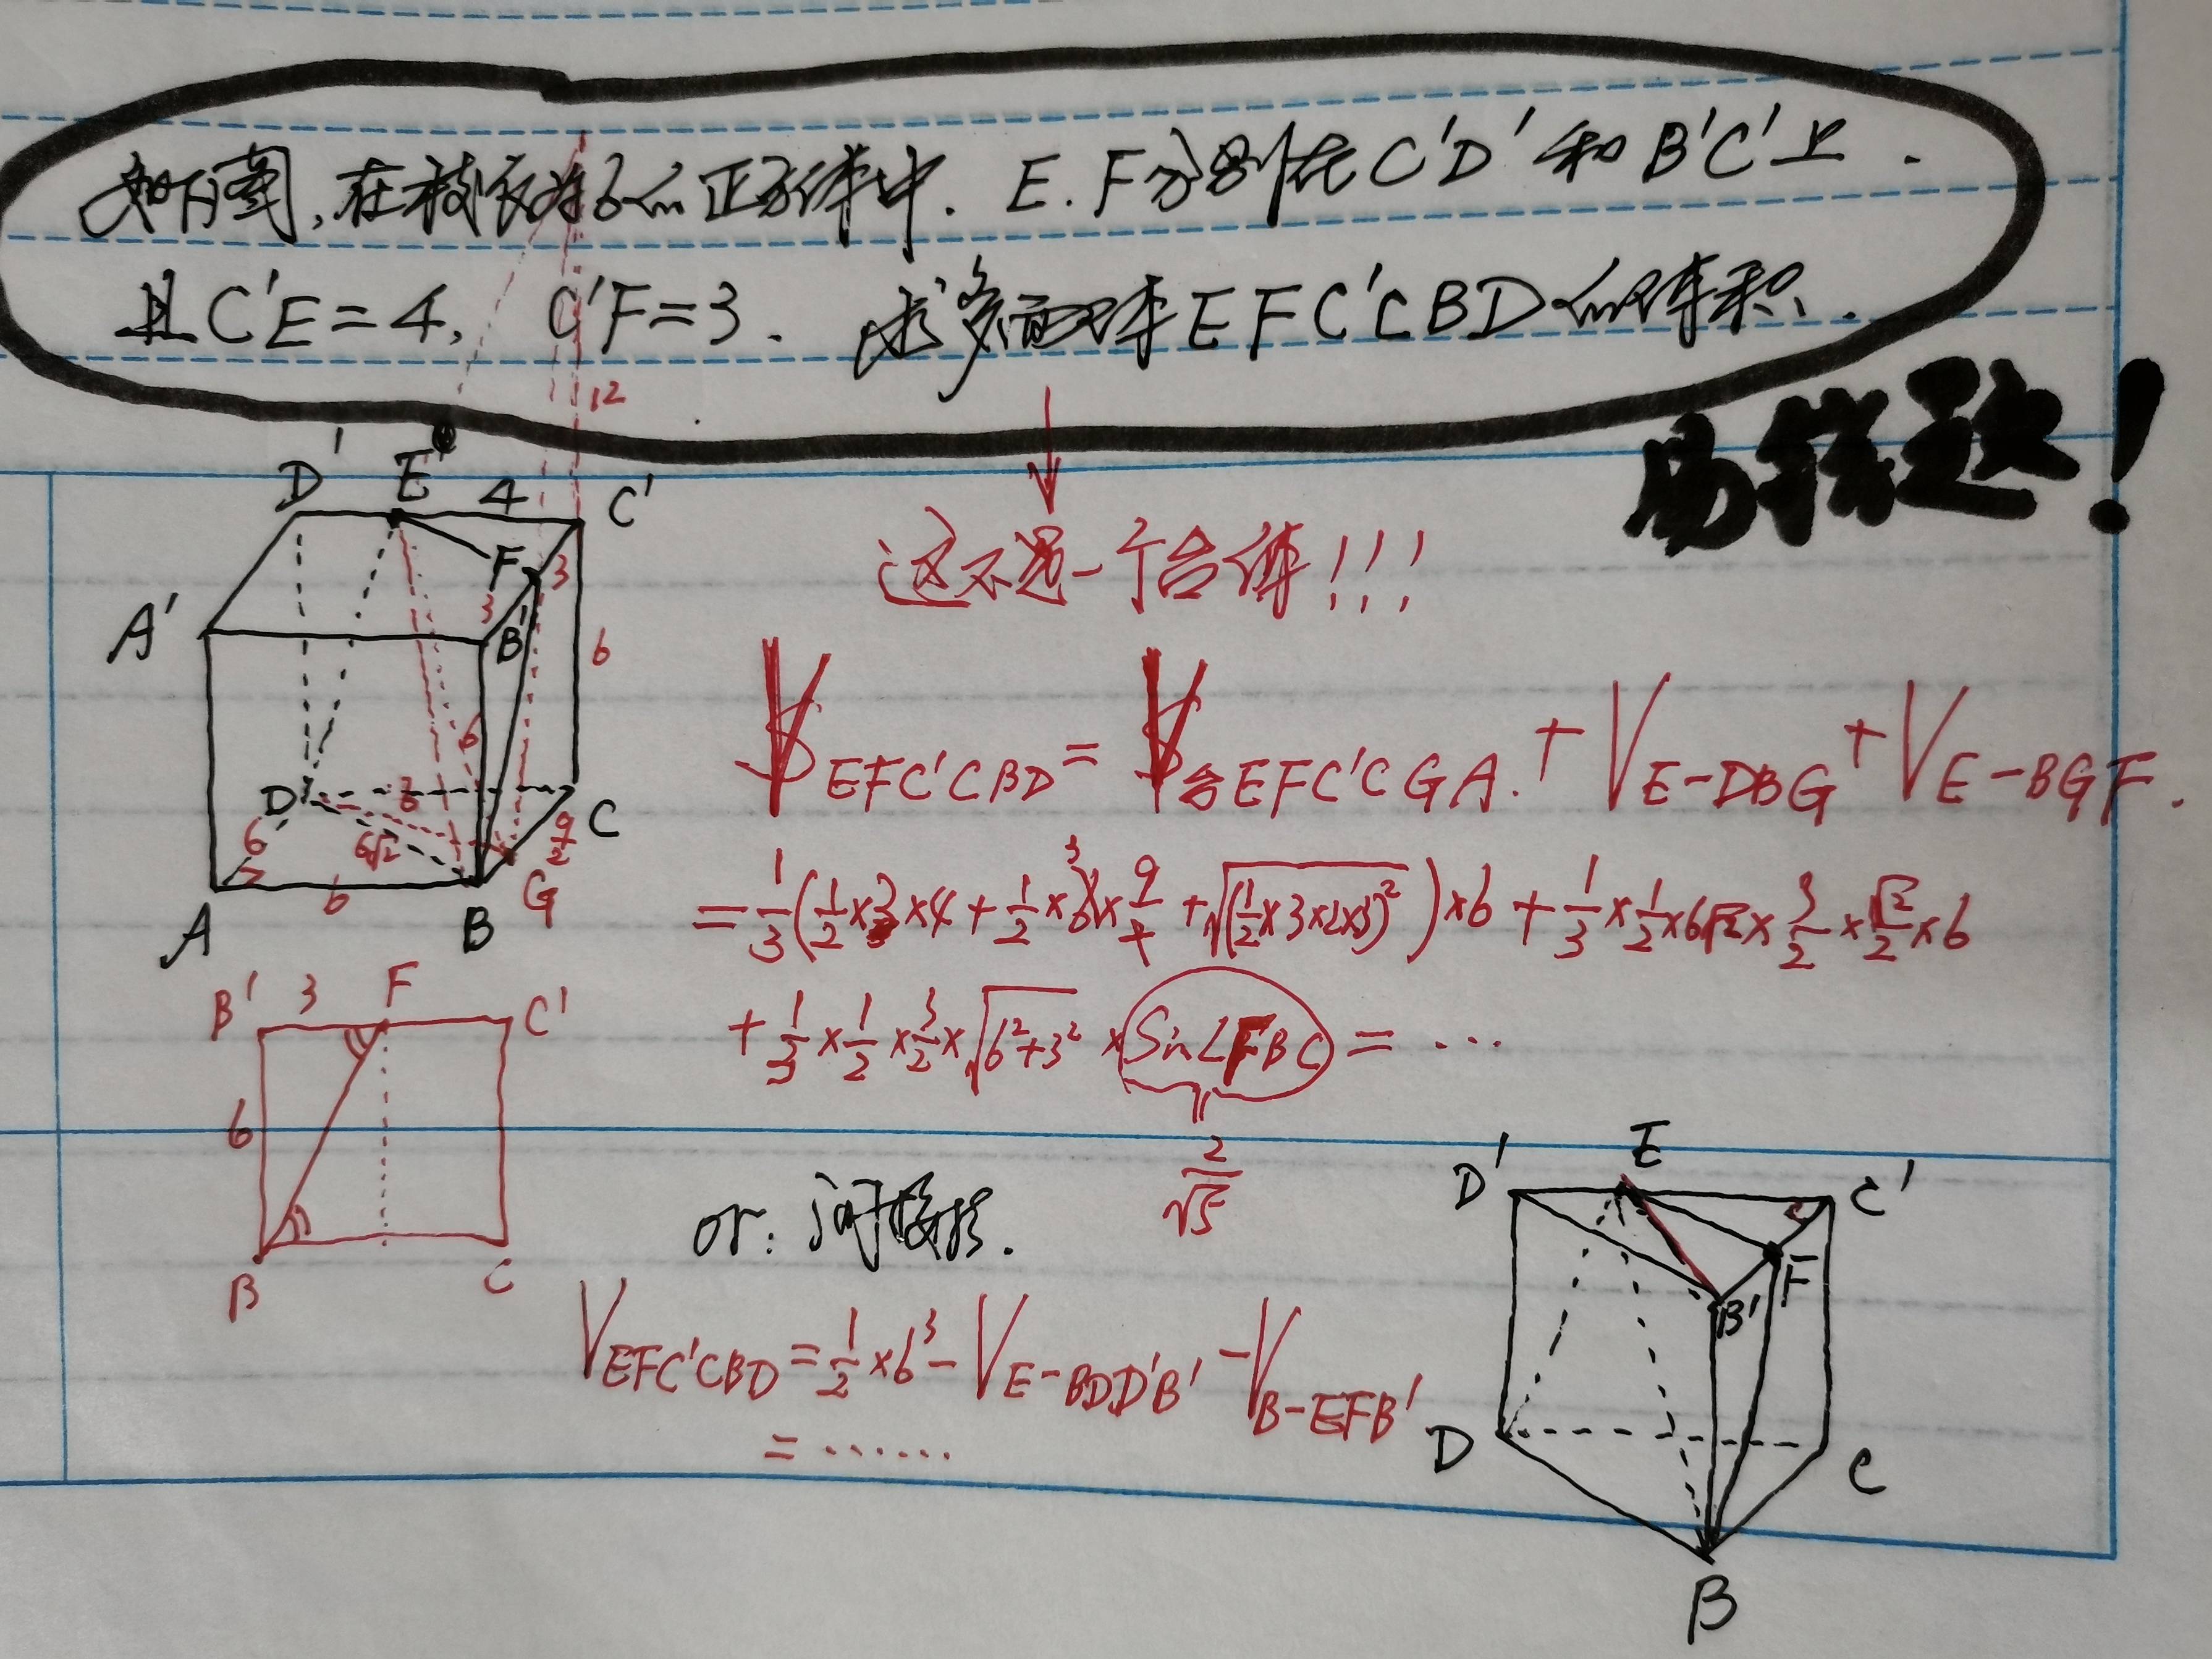 如图,在棱长为6的正方体中. E.F分别在C'D'和B'C'上.
且C'E=4, C'F=3. 求多面体EFC'CBD的体积.
12
易错题!
D' E 4 C'
F 3
3
A' B'
6
这不是一个台体!!!
V EFC'CBD = V台EFC'CGA. + V E-DBG + V E-BGF.
6
D 3 C
6 6√2 9/2
6 G
A B
=1/3(1/2×3×4+1/2×3×9/+√(1/2×3×2×3)²)×6+1/3×1/2×6√2×3/2×√2/2×6
+1/3×1/2×3/2×√6²+3²×Sin∠FBC=...
2/√5
B' 3 F C'
6
B C
or: 间接法.
V EFC'CBD=1/2×6³-V E-BDD'B'-V B-EFB'
=......
D' E C'
F
B'
D C
B